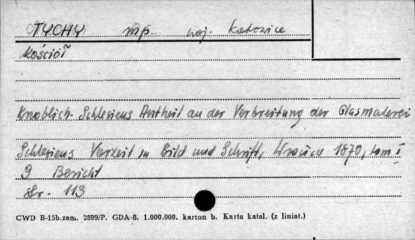 TYCHY m.p. woj. Katowice
Kościół
Knoblich. Schlesiens Antheil an der Verbreitung der Glasmalerei
Schlesiens Vorzeit in Bild und Schrift, Wrocław 1870, tom I
9 Bericht
str. 113
CWD B-15b.zam. 2899/P. GDA-8. 1.000.000. karton b. Karta katal. (z liniat.)